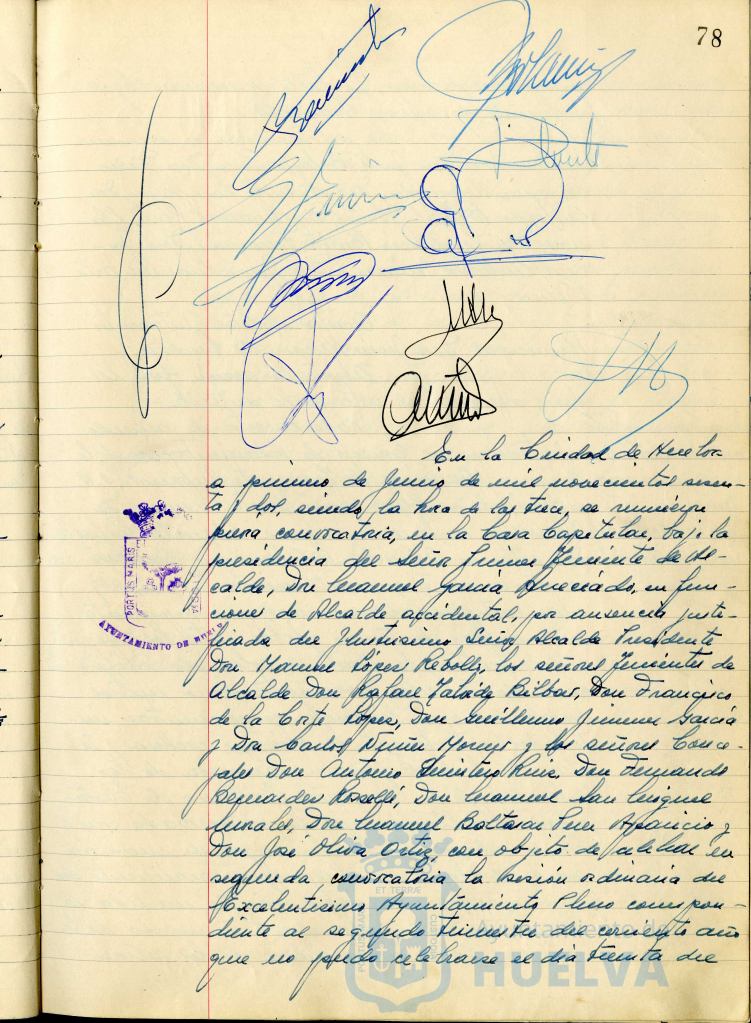 78
En la Ciudad de Huelva
a primero de Junio de mil novecientos sesen-
ta y dos, siendo la hora de las trece, se reunieron
previa convocatoria, en la Casa Capitular, bajo la
presidencia del Señor Primer Teniente de Al-
calde, Don Manuel García en fun-
ciones de Alcalde accidental, por ausencia justi-
ficada del Ilustrísimo Señor Alcalde Presidente
Don Manuel López Rebollo, los señores Tenientes de
Alcalde Don Rafael Bilbao, Don Francisco
de la Corte López, Don Guillermo Jimenez García
y Don Carlos Núñez Moreno y los señores Conce-
jales Don Antonio Quintero Ruiz, Don Fernando
Bermudez Don Manuel San Miguel
Morales, Don Manuel Baltasar Pérez Aparicio y
Don José Oliva Ortiz, con objeto de celebrar en
segunda convocatoria la sesión ordinaria del
Excelentísimo Ayuntamiento Pleno correspon-
diente al segundo trimestre del corriente año
que no pudo celebrarse el día treinta de
PORTUS MARIS
AYUNTAMIENTO DE HUELVA
ET TERRAE
Ayuntamiento de
HUELVA